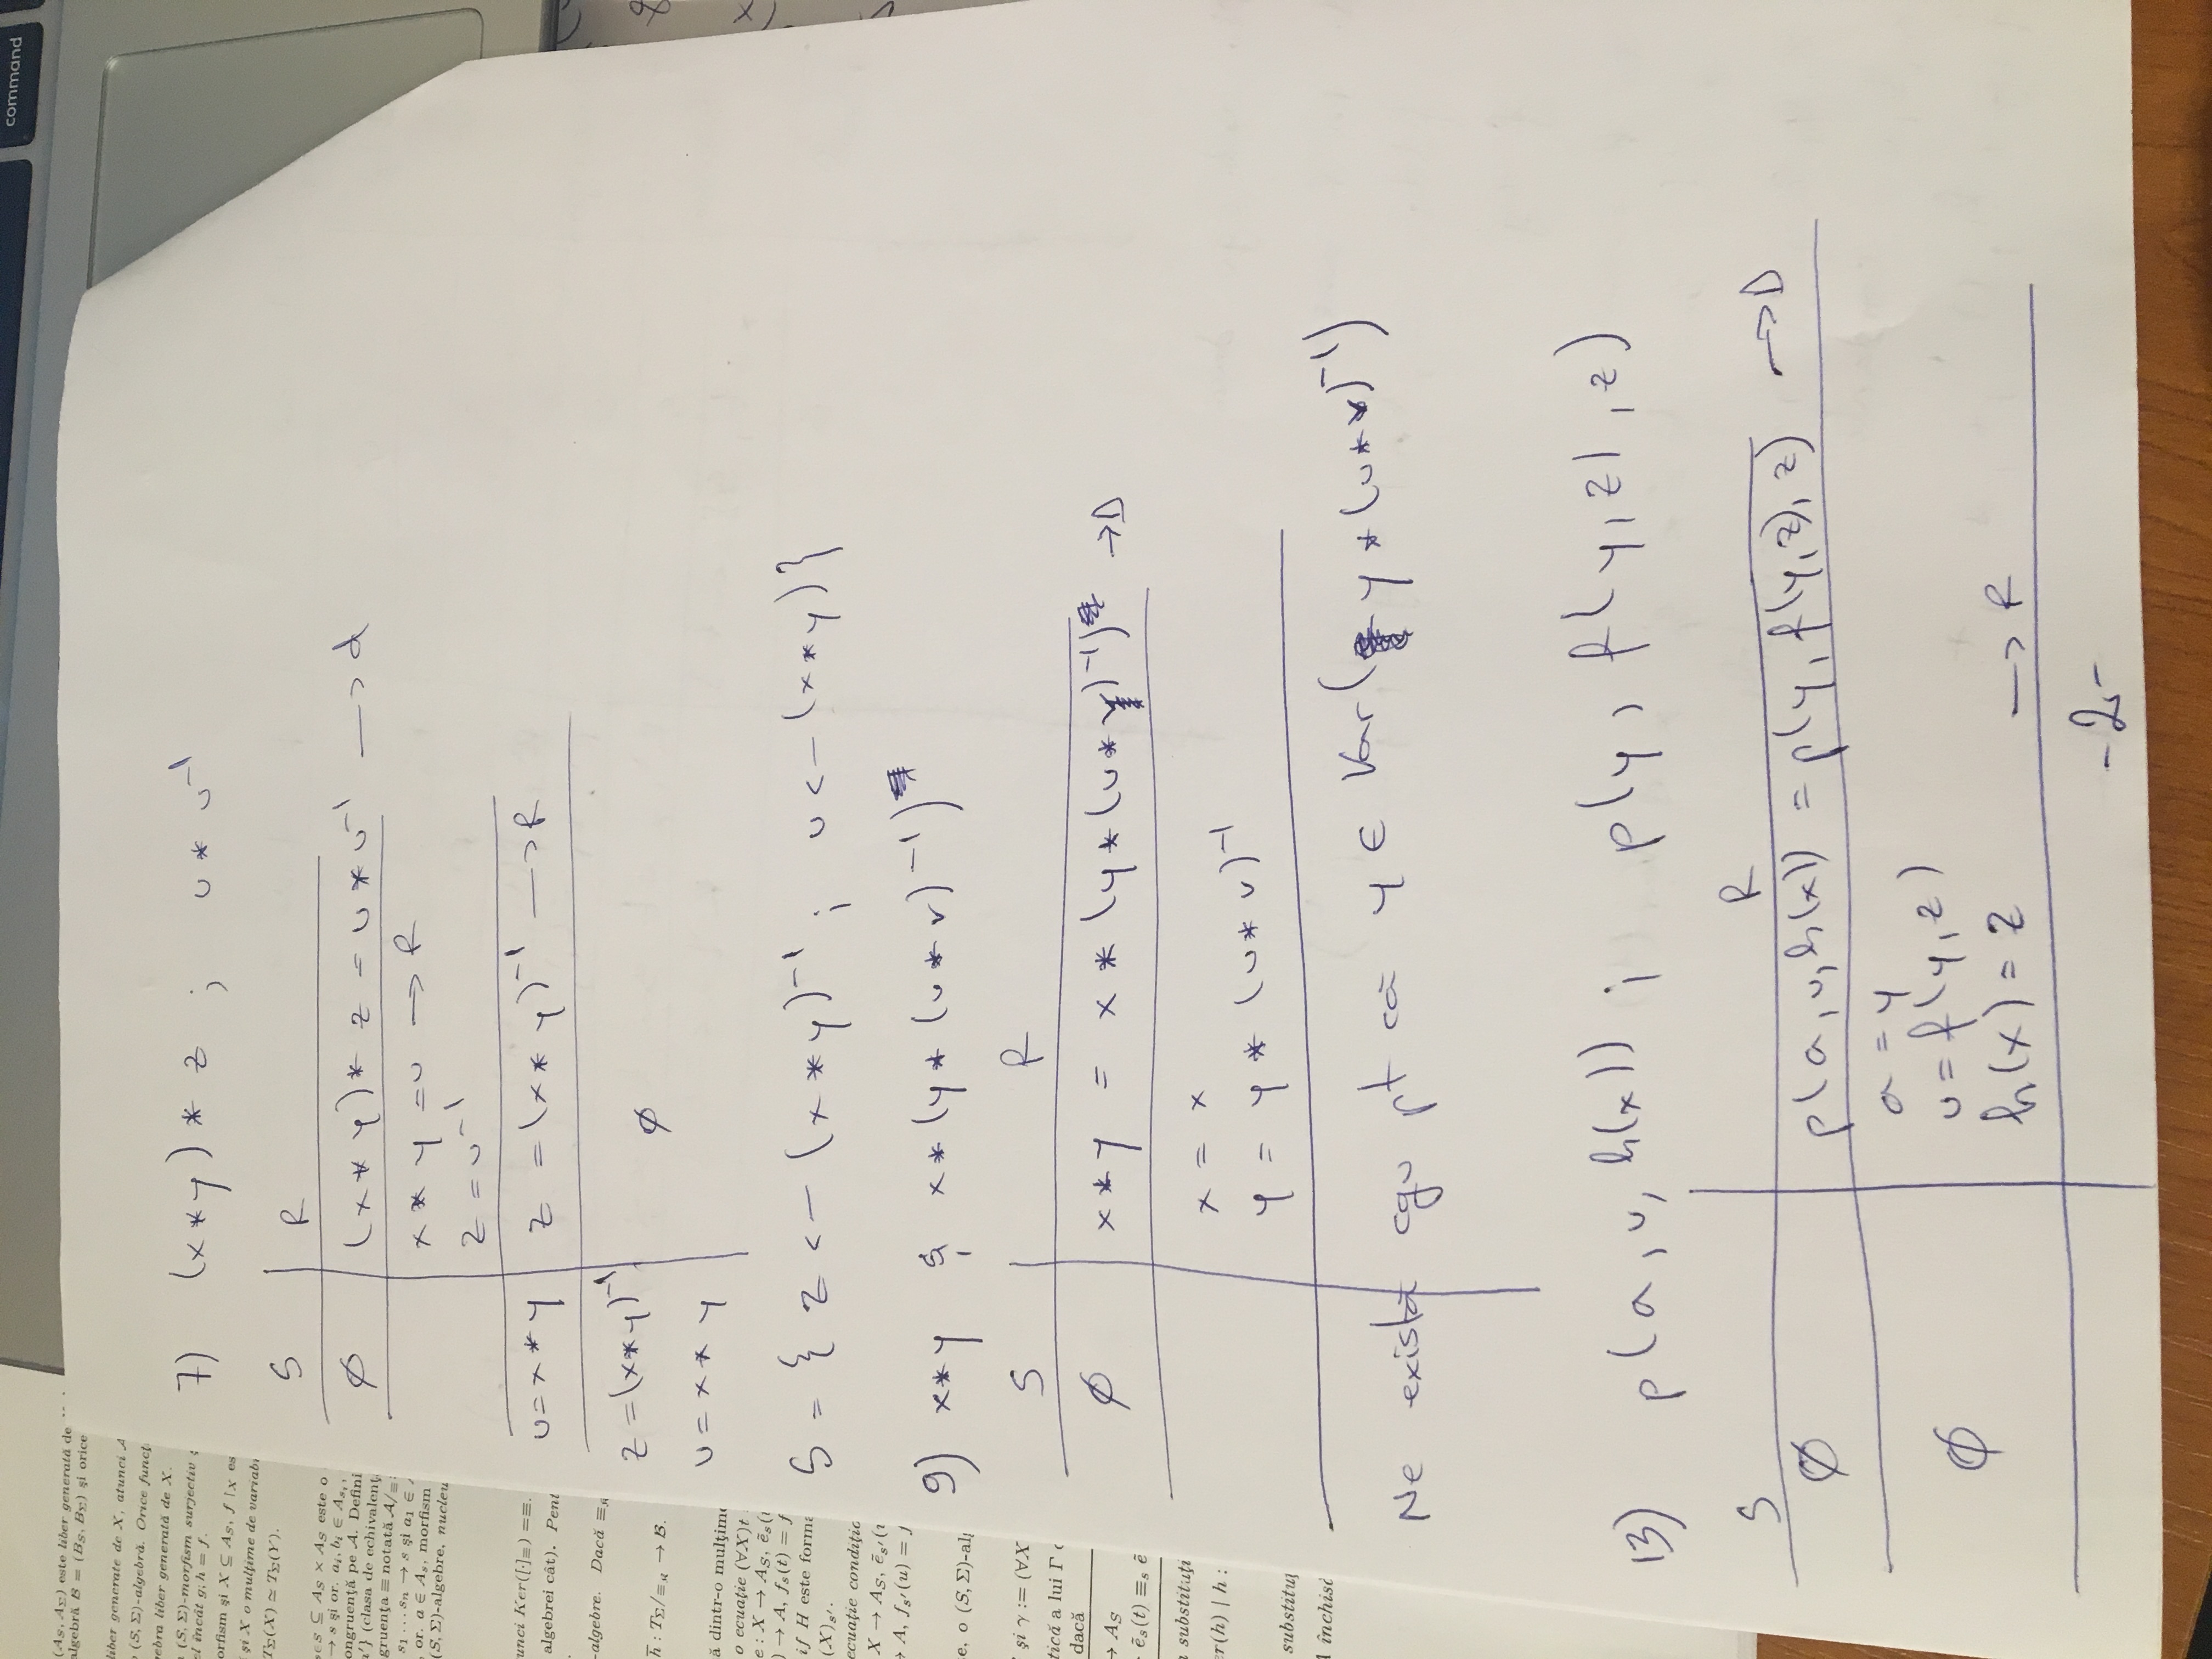 command
(A_S, A_Σ) este liber generată de
algebră B = (B_S, B_Σ) și orice
liber generate de X, atunci A
(S, Σ)-algebră. Orice funcț
ebra liber generată de X.
(S, Σ)-morfism surjectiv
el încât g; h = f.
orfism și X ⊆ A_S, f ↾X es
și X o mulțime de variabi
T_Σ(X) ≃ T_Σ(Y).
⊆ A_S × A_S este o
→ s și or. a_i, b_i ∈ A_{s_i},
ongruență pe A. Defini
a'} (clasa de echivalenț
gruența ≡ notată A/≡
s1 ... sn → s și a1 ∈
, or. a ∈ A_s, morfism
(S, Σ)-algebre, nucleu
unci Ker([·]≡) =≡.
algebrei cât). Pent
-algebre. Dacă ≡
h̄ : T_Σ/≡ → B.
ă dintr-o mulțime
o ecuație (∀X)t
e : X → A_S, ẽ_s(t
) → A, f_s(t) = f
if H este forma
(X)_s'.
ecuație condițio
X → A_S, ẽ_s'(t
→ A, f_s'(u) = f
e, o (S, Σ)-alg
și γ := (∀X
tică a lui Γ
dacă
→ A_S
ẽ_s(t) ≡_s ẽ
substituți
er(h) | h :
substituț
A închisă
7) (x*y) * z ; u * u⁻¹
S | R
∅ | (x*y)* z = u * u⁻¹ → d
x * y = u → R
z = u⁻¹
u = x * y | z = (x * y)⁻¹ → R
z = (x*y)⁻¹ | ∅
u = x * y
S = { z <- (x * y)⁻¹ ; u <- (x*y) }
9) x*y și x*(y*(u*v)⁻¹)
S | R
∅ | x*y = x * (y*(u*v)⁻¹) → D
x = x
y = y * (u*v)⁻¹
Ne există cgu pt că y ∈ Var(y*(u*v)⁻¹)
13) p(a, u, h(x)) ; p(y, f(y, z), z)
S | R
∅ | p(a, u, h(x)) = p(y, f(y,z), z) → D
a = y
∅ | u = f(y, z)
h(x) = z → R
-2-